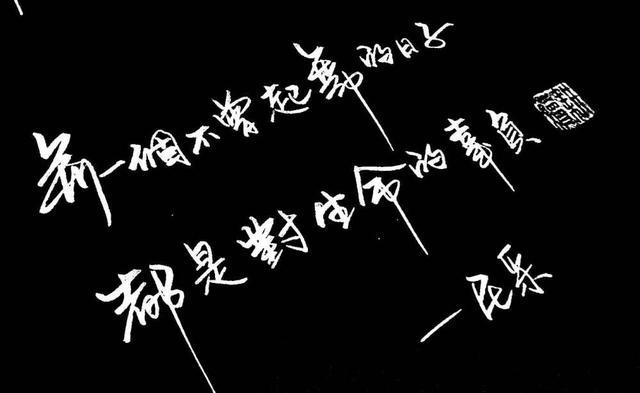 每一個不曾起舞的日子
都是對生命的辜負
—民乐